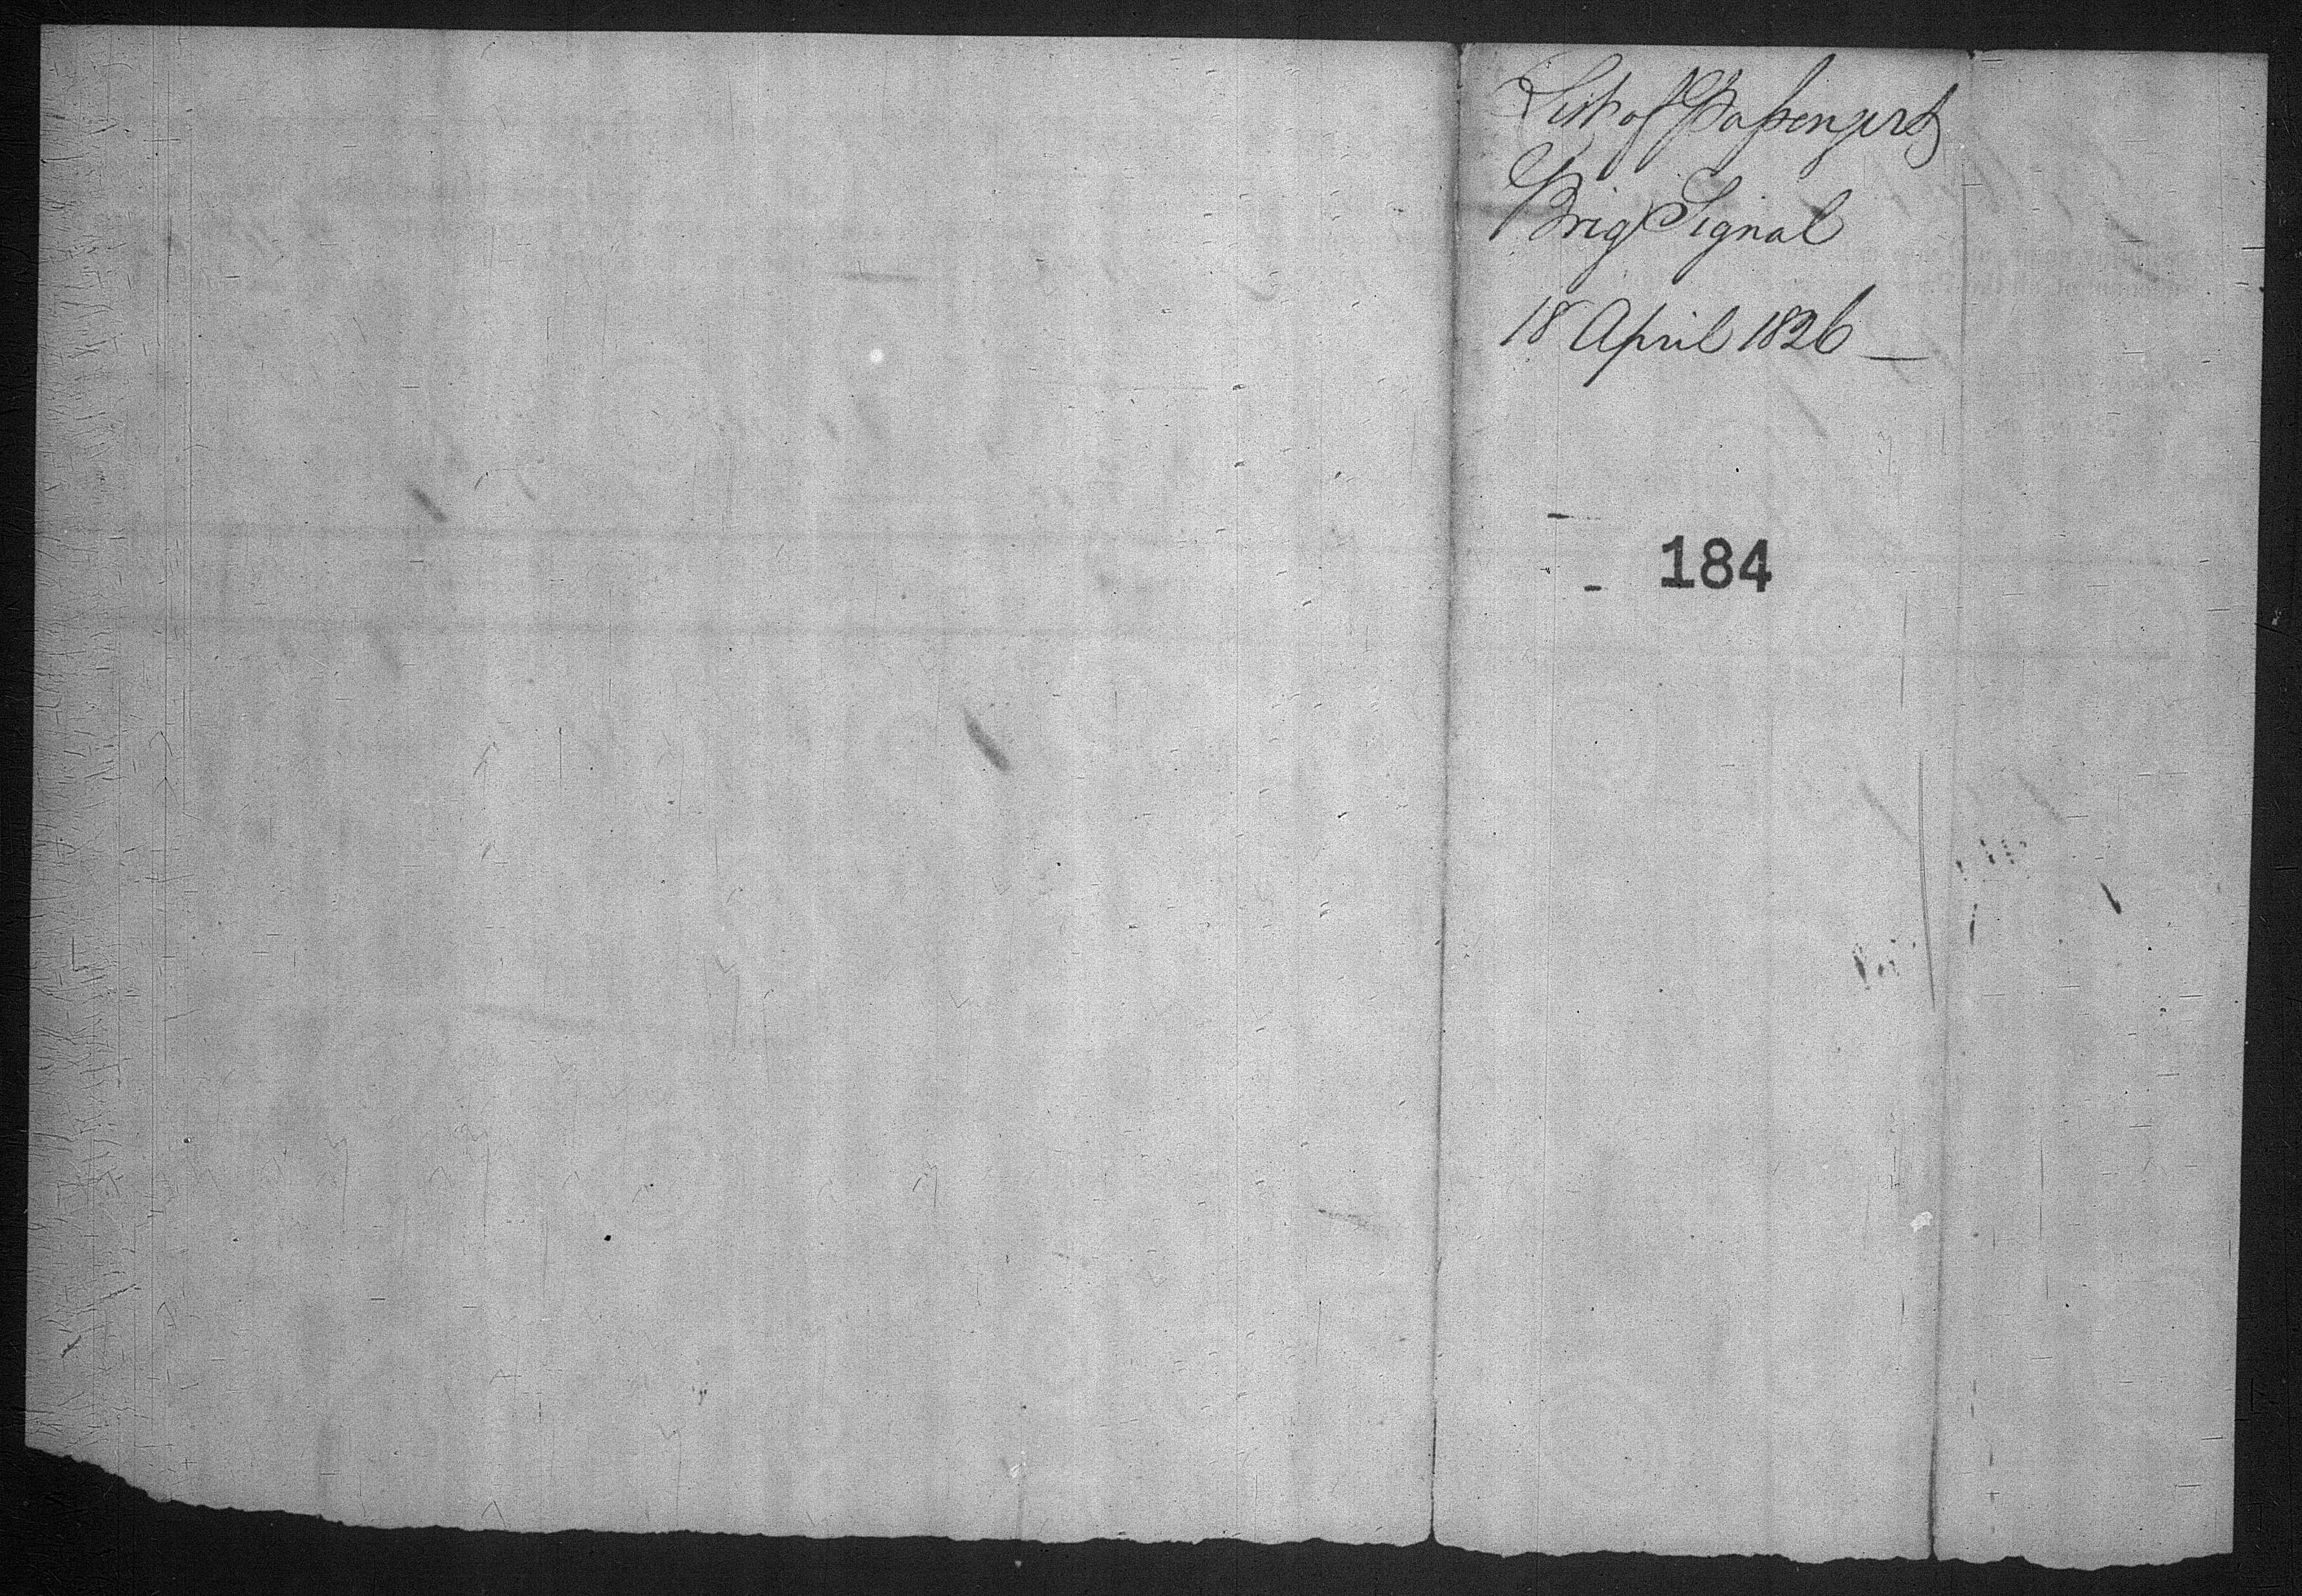 List of Passengers
Brig Signal
18 April 1826 —
184